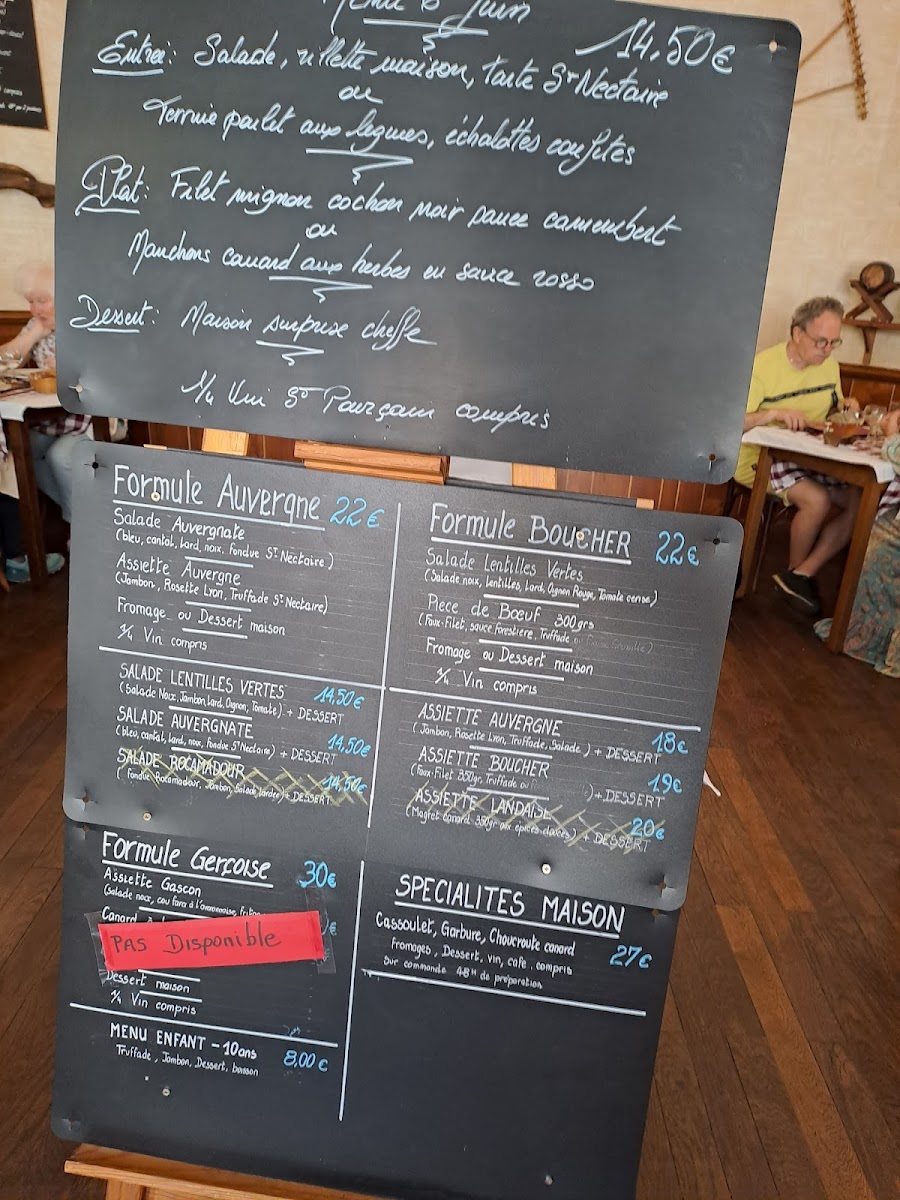 6 Juin
14,50€
Entrée: Salade, rillette maison, tarte St Nectaire
ou
Terrine poulet aux legumes, échalottes confites
Plat: Filet mignon cochon noir sauce camembert
ou
Manchons canard aux herbes en sauce rosso
Dessert: Maison surprise cheffe
1/4 Vin St Pourçain compris
Formule Auvergne 22€
Salade Auvergnate
(bleu, cantal, lard, noix, fondue St Nectaire)
Assiette Auvergne
(Jambon, Rosette Lyon, Truffade St Nectaire)
Fromage ou Dessert maison
1/4 Vin compris
SALADE LENTILLES VERTES 14,50€
(Salade Noix, Jambon, Lard, Oignon, Tomate) + DESSERT
SALADE AUVERGNATE 14,50€
(bleu, cantal, lard, noix, fondue St Nectaire) + DESSERT
SALADE ROCAMADOUR 14,50€
(fondue Rocamadour, Jambon, Salade, lardée) + DESSERT
Formule BOUCHER 22€
Salade Lentilles Vertes
(Salade noix, Lentilles, Lard, Oignon Rouge, Tomate cerise)
Piece de Bœuf 300grs
(Faux-Filet, sauce forestière, Truffade
Fromage ou Dessert maison
1/4 Vin compris
ASSIETTE AUVERGNE 18€
(Jambon, Rosette Lyon, Truffade, Salade) + DESSERT
ASSIETTE BOUCHER 19€
(Faux-Filet 350gr, Truffade ou ) + DESSERT
ASSIETTE LANDAISE 20€
(Magret Canard 350gr aux épices douces) + DESSERT
Formule Gerçoise 30€
Assiette Gascon
(Salade noix, cou farci à l'
Canard
PAS Disponible
Dessert maison
1/4 Vin compris
MENU ENFANT - 10ans 8,00€
Truffade, Jambon, Dessert, boisson
SPECIALITES MAISON
Cassoulet, Garbure, Choucroute canard 27€
fromages, Dessert, vin, café, compris
Sur commande 48H de préparation